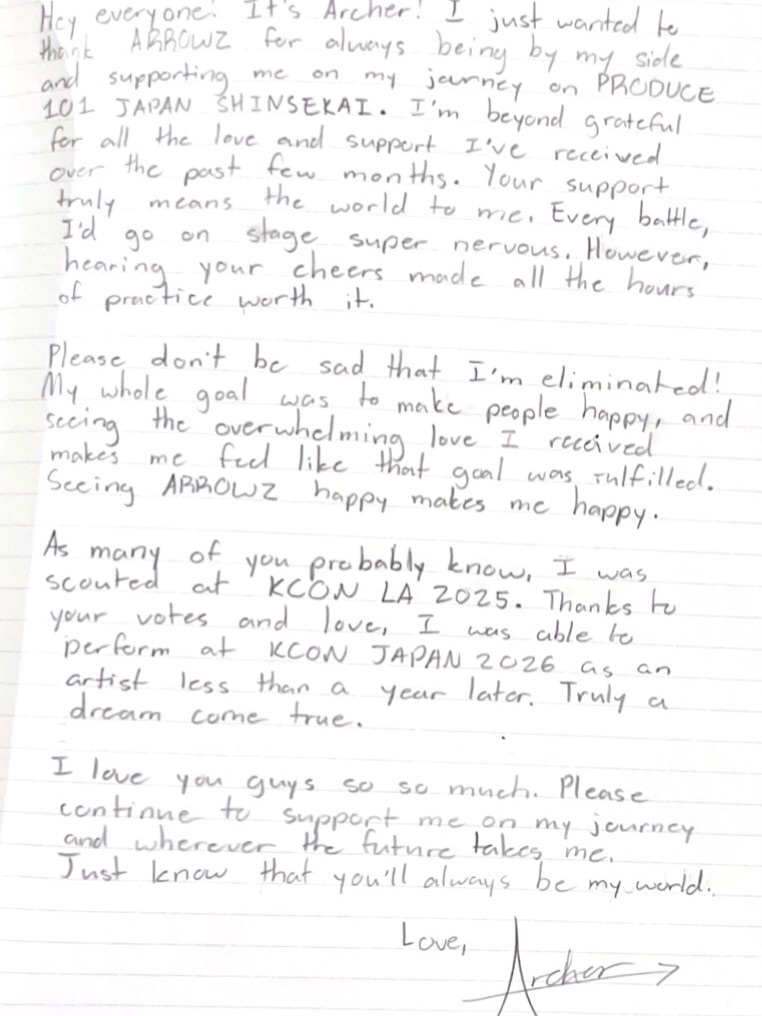 Hey everyone! It's Archer! I just wanted to
thank ARROWZ for always being by my side
and supporting me on my journey on PRODUCE
101 JAPAN SHINSEKAI. I'm beyond grateful
for all the love and support I've received
over the past few months. Your support
truly means the world to me. Every battle,
I'd go on stage super nervous. However,
hearing your cheers made all the hours
of practice worth it.
Please don't be sad that I'm eliminated!
My whole goal was to make people happy, and
seeing the overwhelming love I received
makes me feel like that goal was fulfilled.
Seeing ARROWZ happy makes me happy.
As many of you probably know, I was
scouted at KCON LA 2025. Thanks to
your votes and love, I was able to
perform at KCON JAPAN 2026 as an
artist less than a year later. Truly a
dream come true.
I love you guys so so much. Please
continue to support me on my journey
and wherever the future takes me.
Just know that you'll always be my world.
Love,
Archer